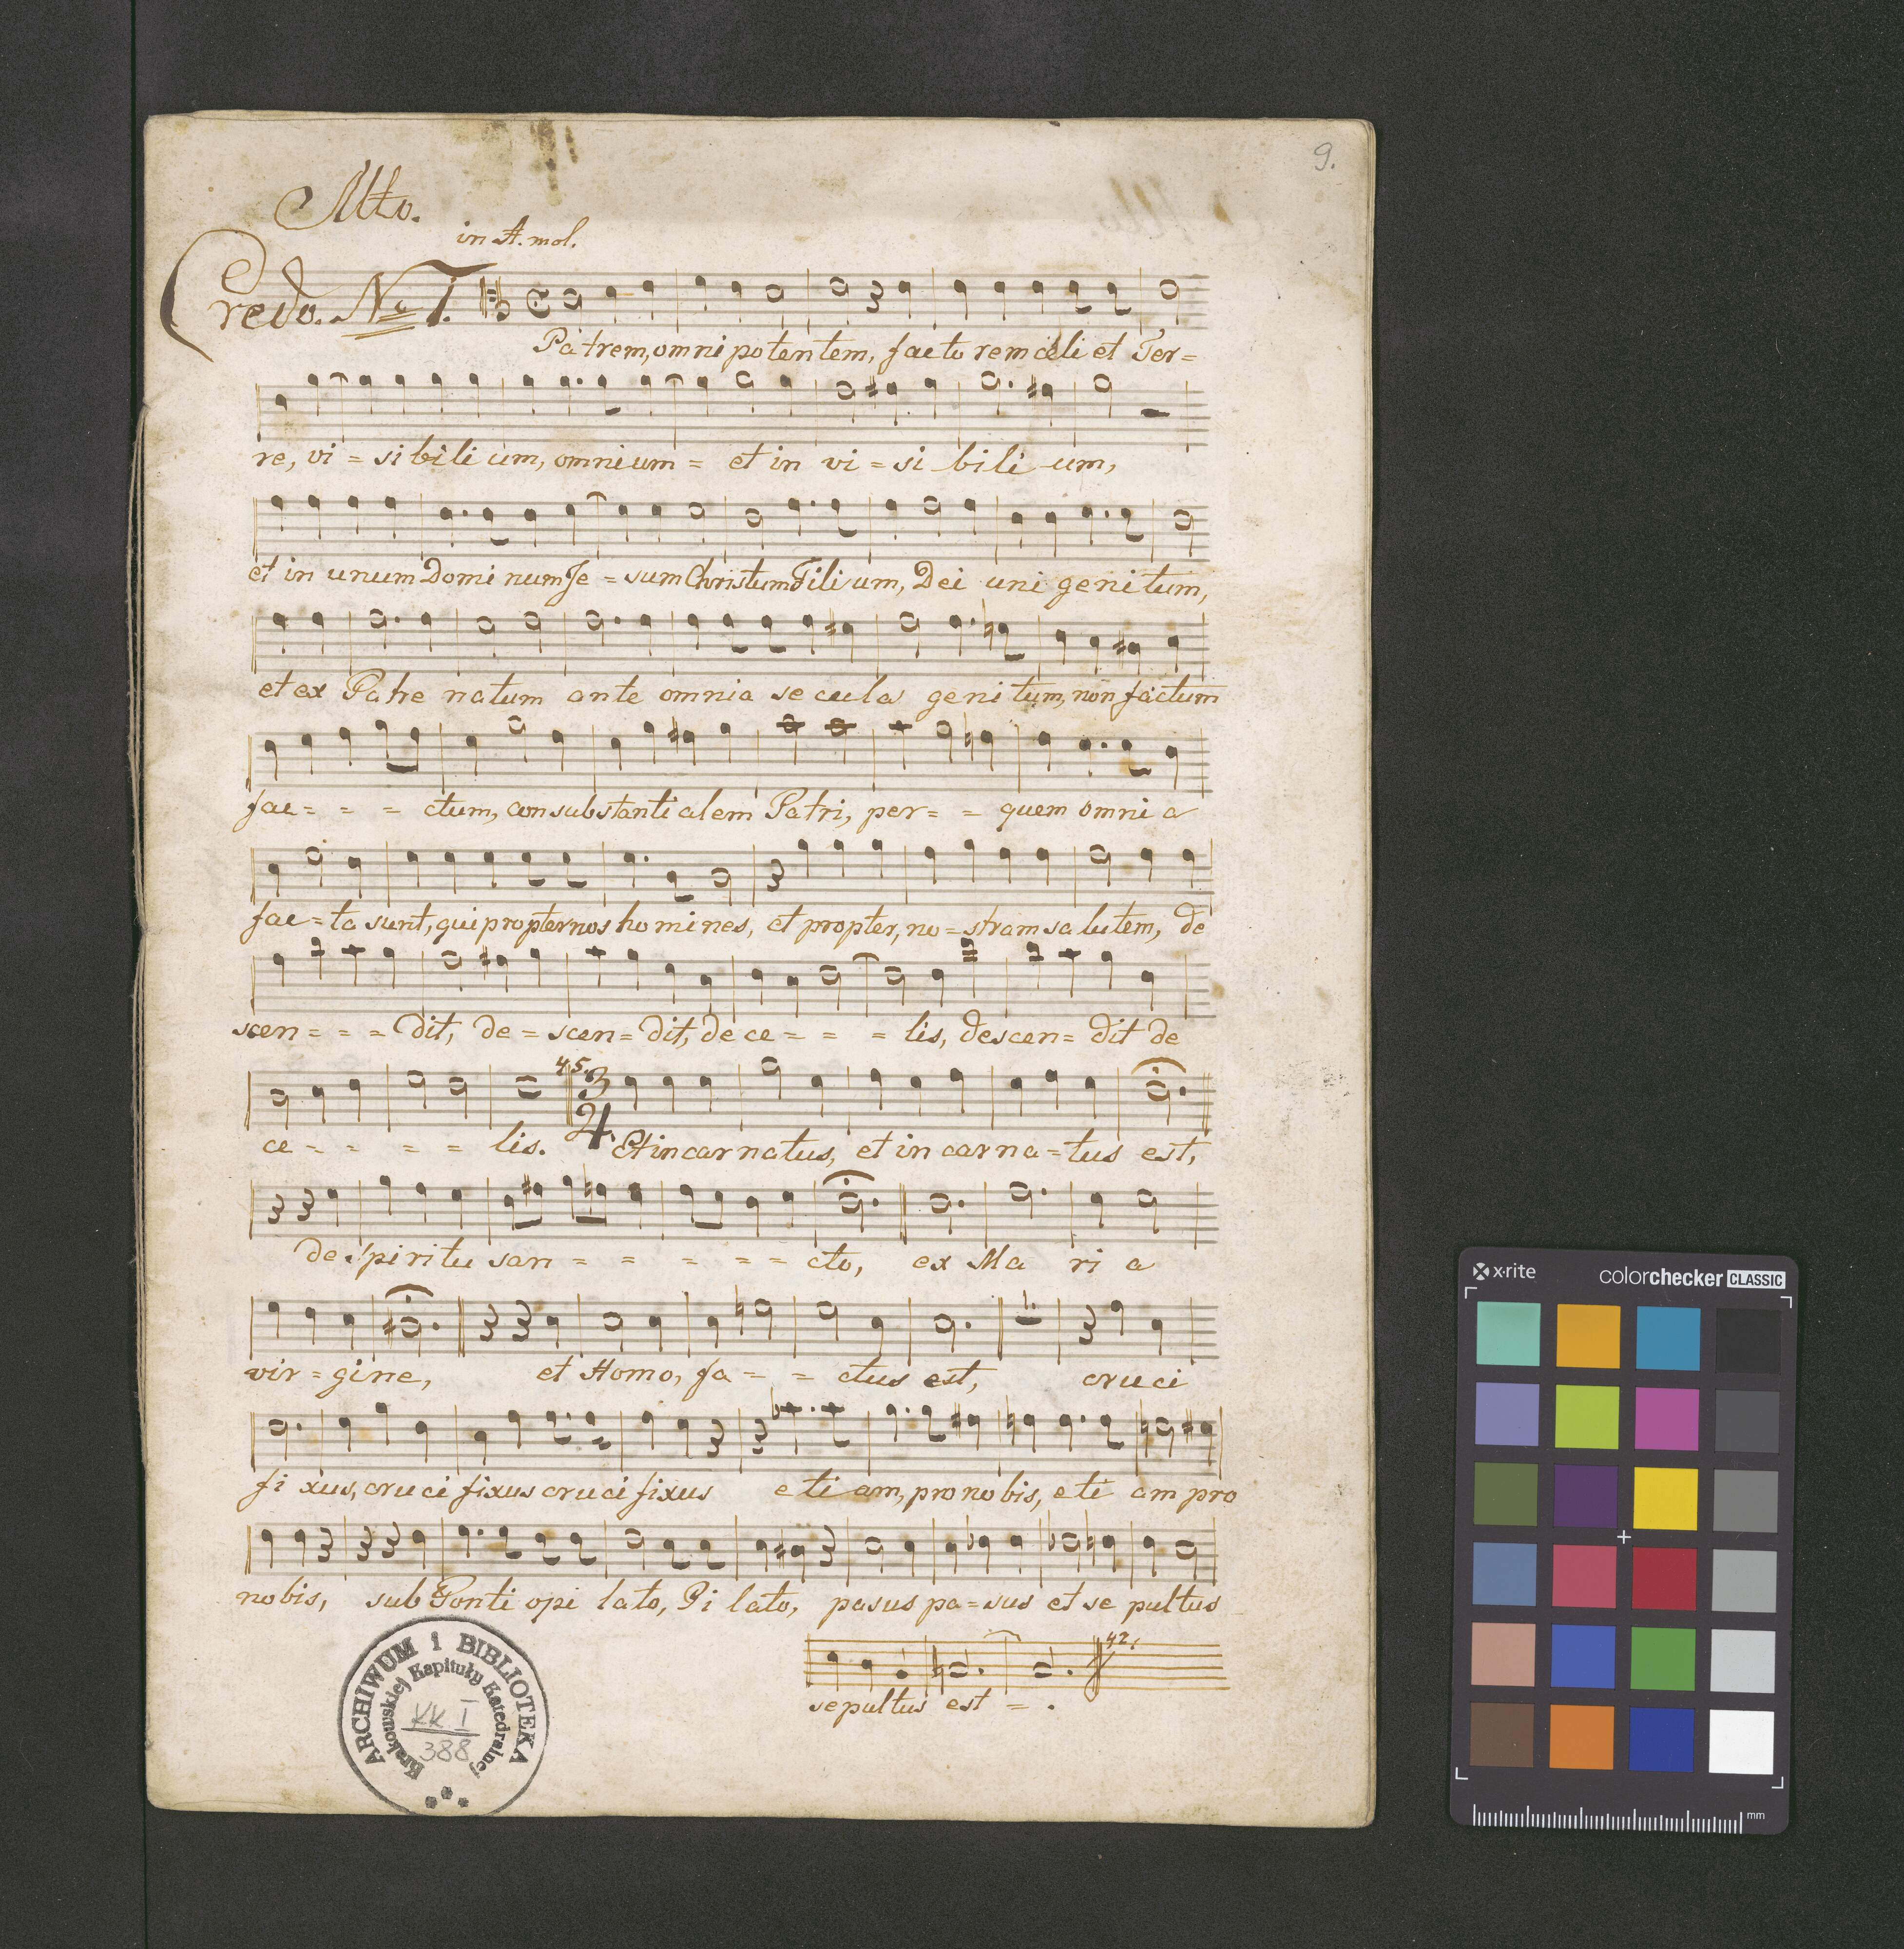 9.
Alto.
in A. mol.
Credo. No 1.
Patrem, omnipotentem, facto rem celi et Ter=
re, vi = sibili um, omnium = et in vi = si bili um,
et in unum Domi num Je = sum Christum Fili um, Dei uni genitum,
et ex Patre natum ante omnia se cula geni tum, non factum
fac = = = ctum, con substanti alem Patri, per = = quem omni a
fac = ta sunt, qui propter nos ho mi nes, et propter, no = stram sa lutem, de
scen = = = dit, de = scen = dit, de ce = = = lis, descen = dit de
45. 3
4
ce = = = = lis. Et in car natus, et in car na = tus est,
de Spiritu san = = = = = cto, ex Ma ri a
1.
vir = gine, et Homo, fa = = ctus est, cru ci
fi xus, cru ci fixus cru ci fixus e ti am, pro no bis, e ti am pro
nobis, sub Ponti opi lato, Pi lato, pasus pa = sus et se pultus
42.
se pultus est = .
ARCHIWUM i BIBLIOTEKA
Krakowskiej Kapituły Katedralnej
KK I
388
x·rite colorchecker CLASSIC
mm